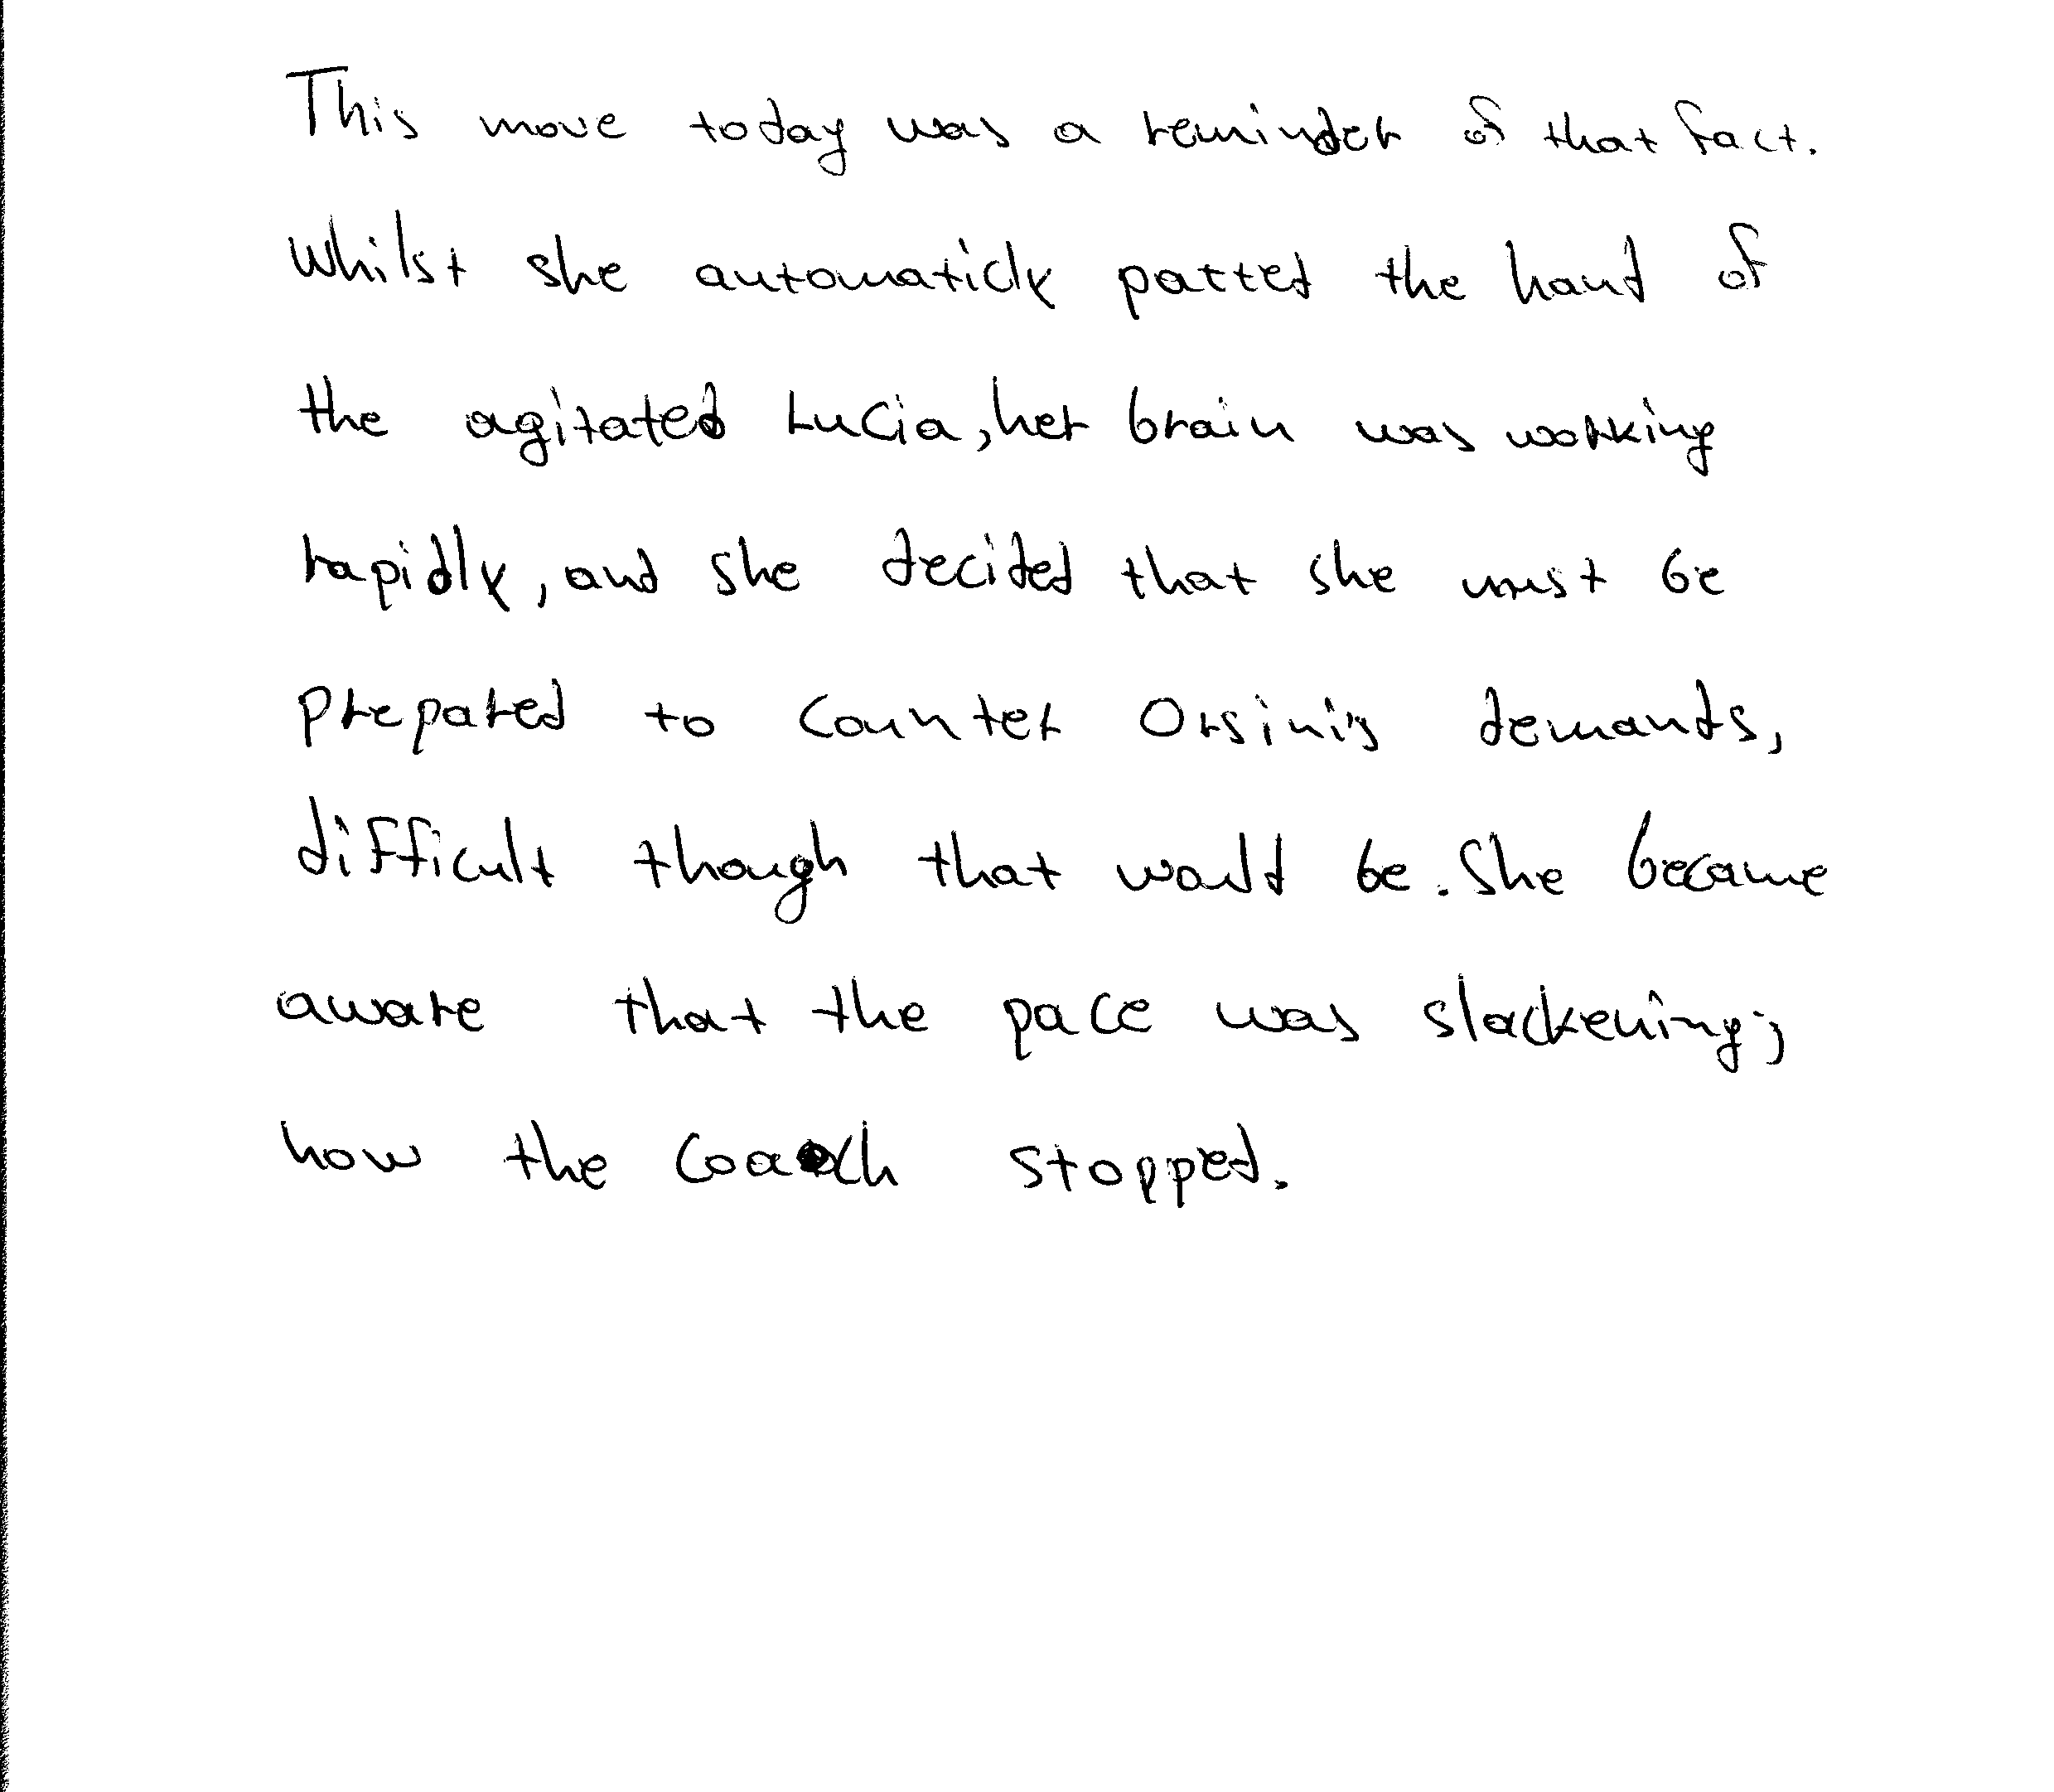 This move today was a reminder of that fact.
Whilst she automaticly patted the hand of
the agitated Lucia, her brain was working
rapidly, and she decided that she must be
prepared to counter Orsini's demands,
difficult though that would be. She became
aware that the pace was slackening;
now the coach stopped.